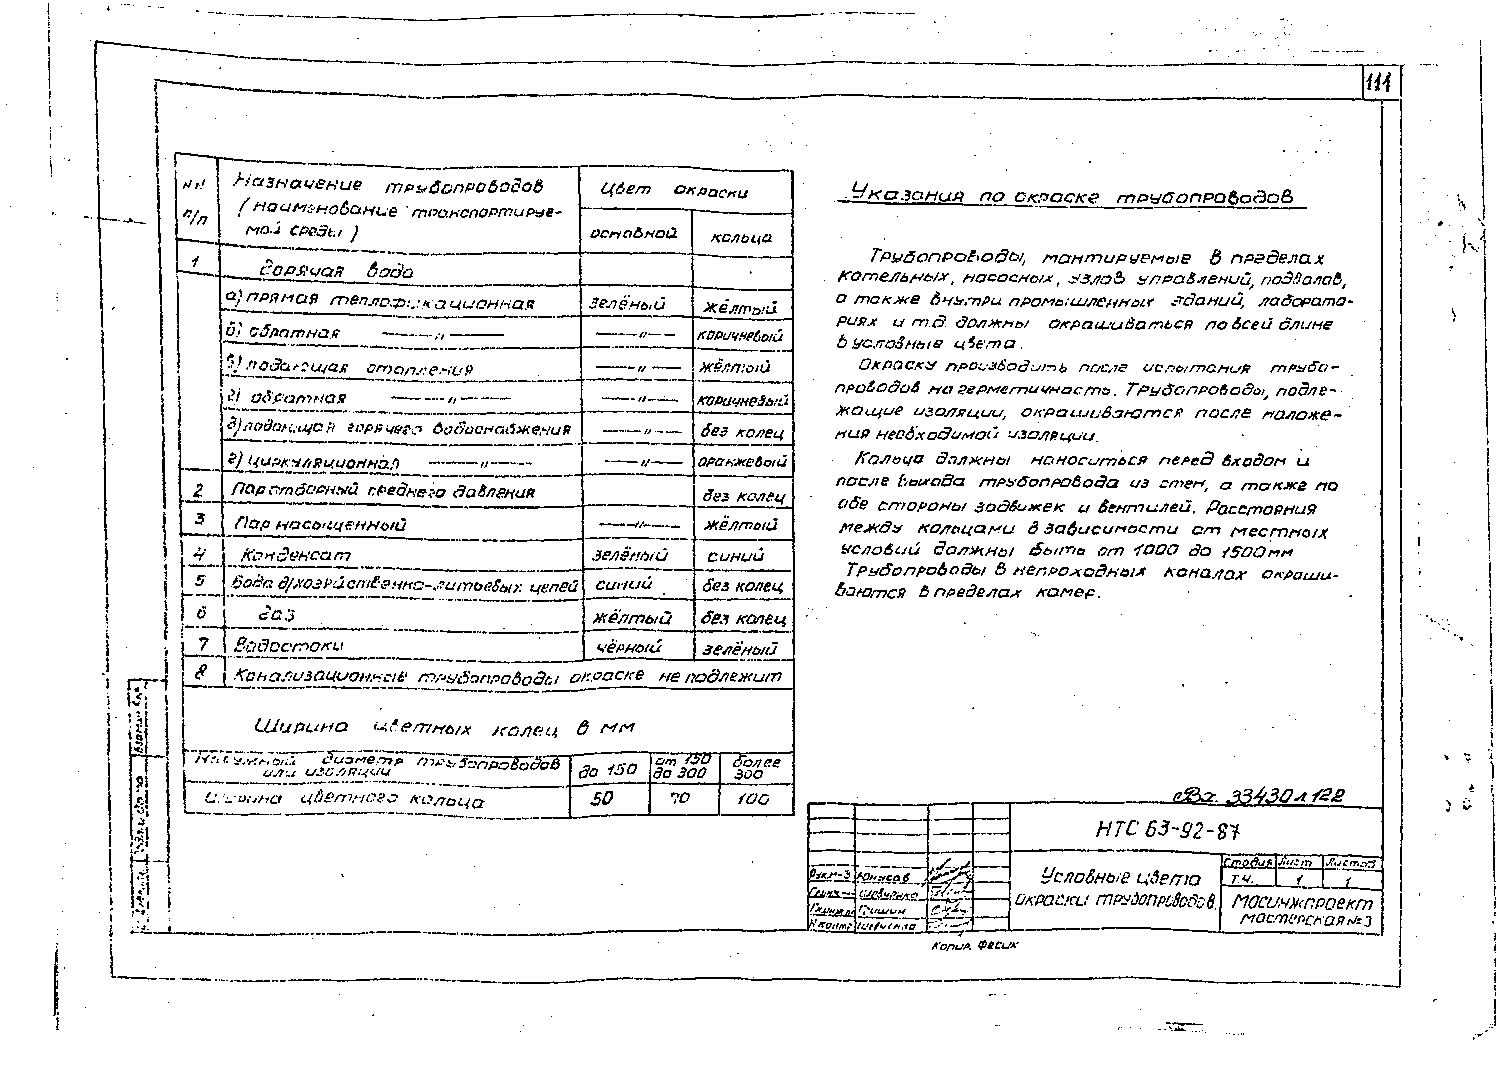 111
№№ Назначение трубопроводов Цвет окраски
п/п (наименование транспортируе-
мой среды) основной кольца
1 Горячая вода
а) прямая теплофикационная зелёный жёлтый
б) обратная —〃— —〃— коричневый
в) подающая отопления —〃— жёлтый
г) обратная —〃— —〃— коричневый
д) подающая горячего водоснабжения —〃— без колец
г) циркуляционная —〃— —〃— оранжевый
2 Пар отборный среднего давления без колец
3 Пар насыщенный —〃— жёлтый
4 Конденсат зелёный синий
5 Вода д/хозяйственно-питьевых целей синий без колец
6 Газ жёлтый без колец
7 Водостоки чёрный зелёный
8 Канализационные трубопроводы окраске не подлежит
Ширина цветных колец в мм
Наружный диаметр трубопроводов или изоляции до 150 от 150 до 300 более 300
Ширина цветного кольца 50 70 100
Указания по окраске трубопроводов
Трубопроводы, монтируемые в пределах
котельных, насосных, узлов управлений, подвалов,
а также внутри промышленных зданий, лаборато-
риях и т.д. должны окрашиваться по всей длине
в условные цвета.
Окраску производить после испытания трубо-
проводов на герметичность. Трубопроводы, подле-
жащие изоляции, окрашиваются после наложе-
ния необходимой изоляции.
Кольца должны наноситься перед входом и
после выхода трубопровода из стен, а также по
обе стороны задвижек и вентилей. Расстояния
между кольцами в зависимости от местных
условий должны быть от 1000 до 1500мм
Трубопроводы в непроходных каналах окраши-
ваются в пределах камер.
33430 л 122
НТС 63-92-87
Условные цвета
окраски трубопроводов.
Стадия Лист Листов
Т.Ч. 1 1
Мосинжпроект
мастерская №3
Рук.М-3 Юнусов
Гришин
Н.контр
Копир. Фесик